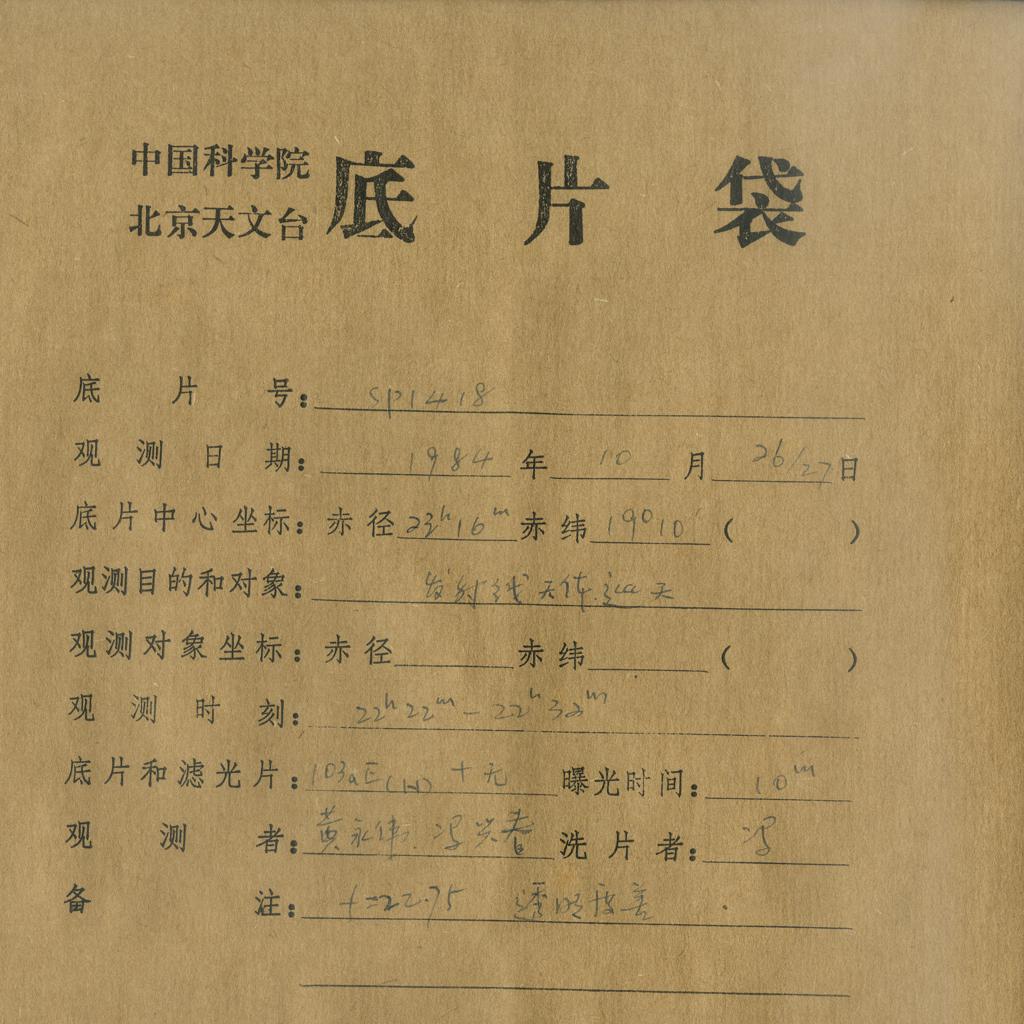 中国科学院
北京天文台
底片袋
底片号：SP1418
观测日期：1984年10月26/27日
底片中心坐标：赤径23h16m赤纬19°10′（ ）
观测目的和对象：发射线天体巡天
观测对象坐标：赤径 赤纬 （ ）
观测时刻：22h22m－22h32m
底片和滤光片：103aE(N)＋无 曝光时间：10m
观测者：黄永伟.冯兴春 洗片者：冯
备注：t=22.75 透明度差